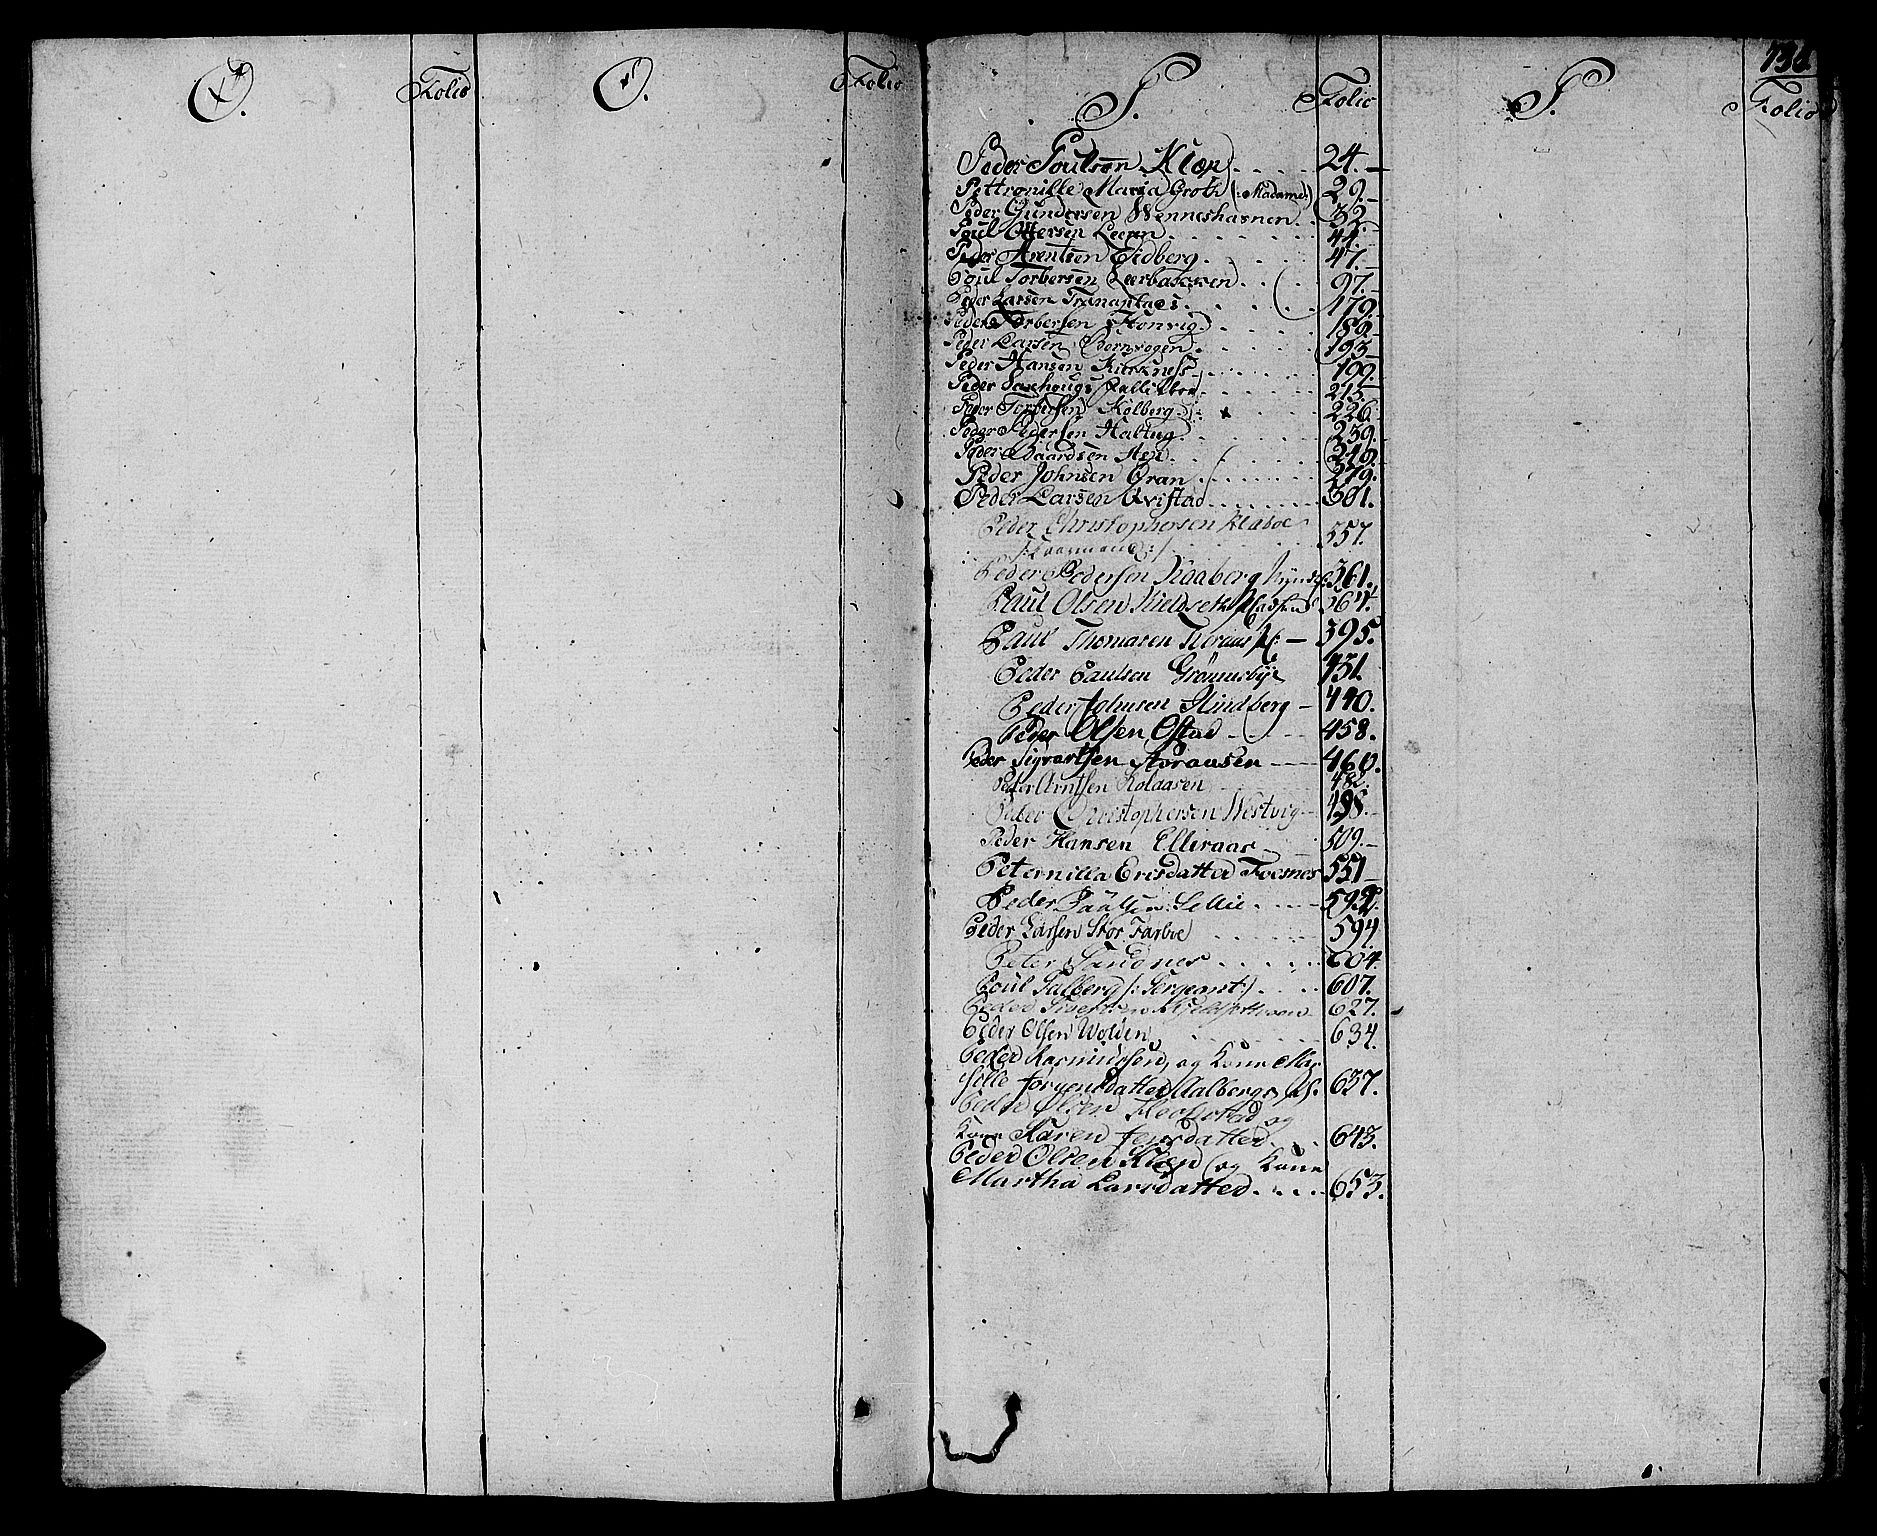 O. Folio O. Folio
P. Folio P. Folio
Peder Poulsøn Klæp 24.
Pettronille Maria Groth (: Madame:) 29.
Peder Gundersen Wenneshavnen 32.
Poul Ottersen Leeren 44.
Peder Arentsøn Eidberg 47.
Poul Torbersen 97.
Peder Larsen Tranaplads 179.
Peder Torbersen 189
Peder Larsen 193
Peder Hansen Kirkness 199.
Peder 213
Peder Torbersen Kolberg 226
Peder Pedersen Haltug 239.
Peder Baardsen Hen 249
Peder Johnsen Gran 279.
Peder Larsen Qvistad 301.
Peder Christophersen Klæboe 357.
/: Laarmand :/
Peder Pedersen Kaaberg 361.
Paul Olsen Kieldseth Madsens 364.
Paul Thomasen 395.
Peder Paulsen Grønnesbye 431.
Peder Johnsen Hindberg 440.
Peder Olsen Østad 458.
Peder Sigvartsen Storaasen 460.
Peder Arntsen Kolaasen 482.
Peder Christophersen Westvig 498.
Peder Hansen Elliraas 509.
Peternilla Ericsdatter Foesnes 551
Peder Paulsen Sellie 592.
Peder Larsen Stor Farboe 594
Peter Sandnes 604.
Poul Falberg /: Sergeant:/ 607.
Peder Iversen 627.
Peder Olsen Wolden 634.
Peder Rasmussen, og Kone Mar
sille Jørgensdatter Aalberg 637.
Peder Olsen og
Kone Karen Jensdatter 643.
Peder Olsen Klæp og Kone
Martha Larsdatter 653.